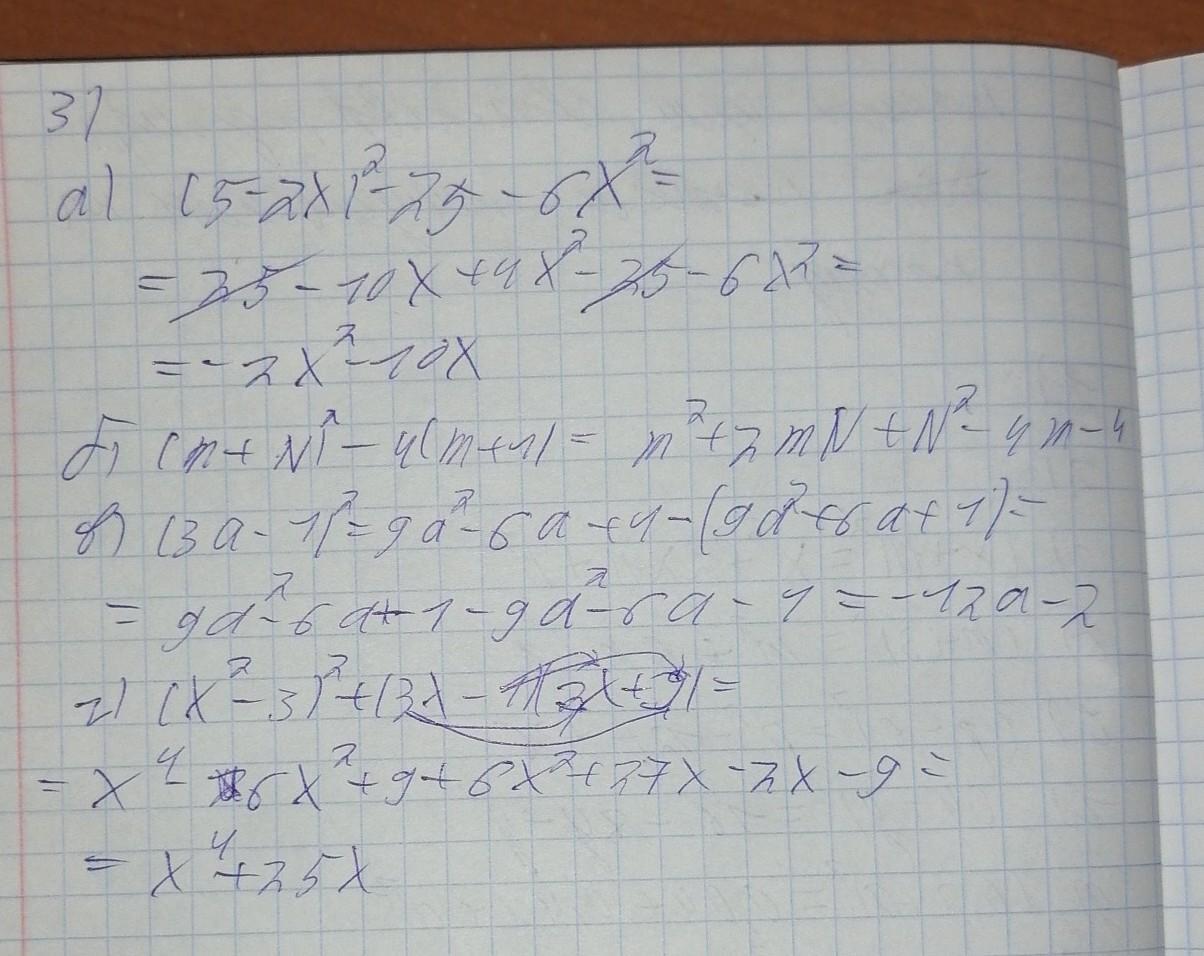 3)
а) (5-2x)²-25-6x²=
= 25-10x+4x²-25-6x²=
=-2x²-10x
б) (m+N)²-4(m+1)= m²+2mN+N²-4m-4
в) (3a-1)²=9a²-6a+1-(9a²+6a+1)=
= 9a²-6a+1-9a²-6a-1=-12a-2
г) (x²-3)²+(3x-1)(2x+9)=
= x⁴-6x²+9+6x²+27x-2x-9=
= x⁴+25x